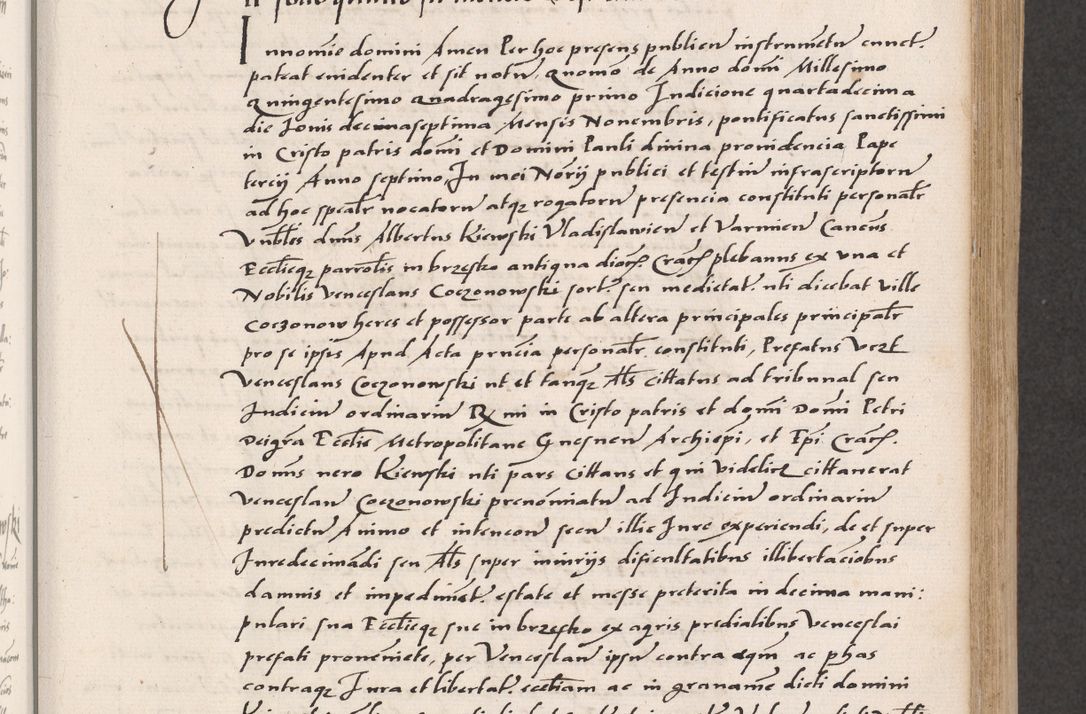 In nomine domini Amen Per hoc presens publicu instrumetu cunct.
pateat euidenter et sit notu, Quomo de Anno domi Millesimo
Quingentesimo Quadragesimo primo Indicione quartadecima
die Iouis decimaseptima Mensis Nouembris, pontificatus sanctissimi
in Cristo patris domi et Domini Pauli diuina prouidencia Pape
tercij Anno septimo, In mei Norij publici et testiu infrascriptoru
ad hoc spealr uocatoru atq rogatoru presencia constituti personalr
Vnbles dnus Albertus Kiewski Vladislauien et Varmien Cancus
Ecclieq parrolis in brzesko antiqua dioc Crac plebanus ex vna et
Nobilis Venceslaus Coczonowski sort. seu medietat. uti dicebat ville
Coczonow heres et possessor parte ab altera principales principalr
pro se ipsis Apud Acta pncia personalr constituti, Prefatus
Venceslaus Coczonowski ut et tanq Als cittatus ad tribunal seu
Iudiciu ordinariu R mi in Cristo patris et domi Domi Petri
Deigra Ecclie Metropolitane Gnesnen Archiepi, et Epi Crac.
Domus uero Kiewski uti pars cittans et qui videlicz cittauerat
Venceslau Coczonowski prenominatu ad Iudiciu ordinariu
predictu Animo et intencon secu illic Iure experiendi, de et super
Iuredecimadi seu Als super iniurijs dificultatibus illibertaciobus
damnis et impedimet. estate et messe preterita in decima mani:
pulari sua Eccliеq sue in brzesko ex agris predialibus Venceslai
prefati prouenicte, per Venceslau ipsu contra eqm ac phas
contraq Iura et libertat. ecctiam ac in grauame dicti domini